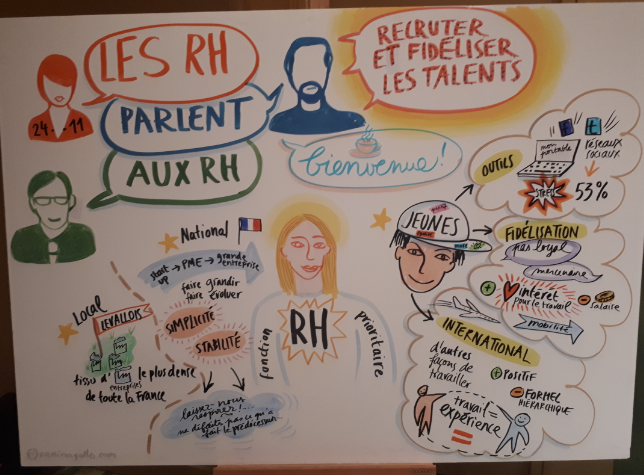 LES RH
24..11
PARLENT
AUX RH
RECRUTER
ET FIDÉLISER
LES TALENTS
bienvenue!
OUTILS
mon
portable
t
réseaux
sociaux
STRESS
53%
JEUNES
FIDÉLISATION
pas loyal
mercenaire
+ intérêt
pour le travail
- salaire
mobilité
INTERNATIONAL
d'autres
façons de
travailler
+ POSITIF
- FORMEL
HIÉRARCHIQUE
travail =
expérience
National
start up → PME → grande entreprise
faire grandir
faire évoluer
SIMPLICITÉ
STABILITÉ
Local
LEVALLOIS
tissu d'entreprises le plus dense
de toute la France
laissez-nous
respirer!...
ne défaites pas ce qu'a
fait le prédécesseur
fonction
RH
prioritaire